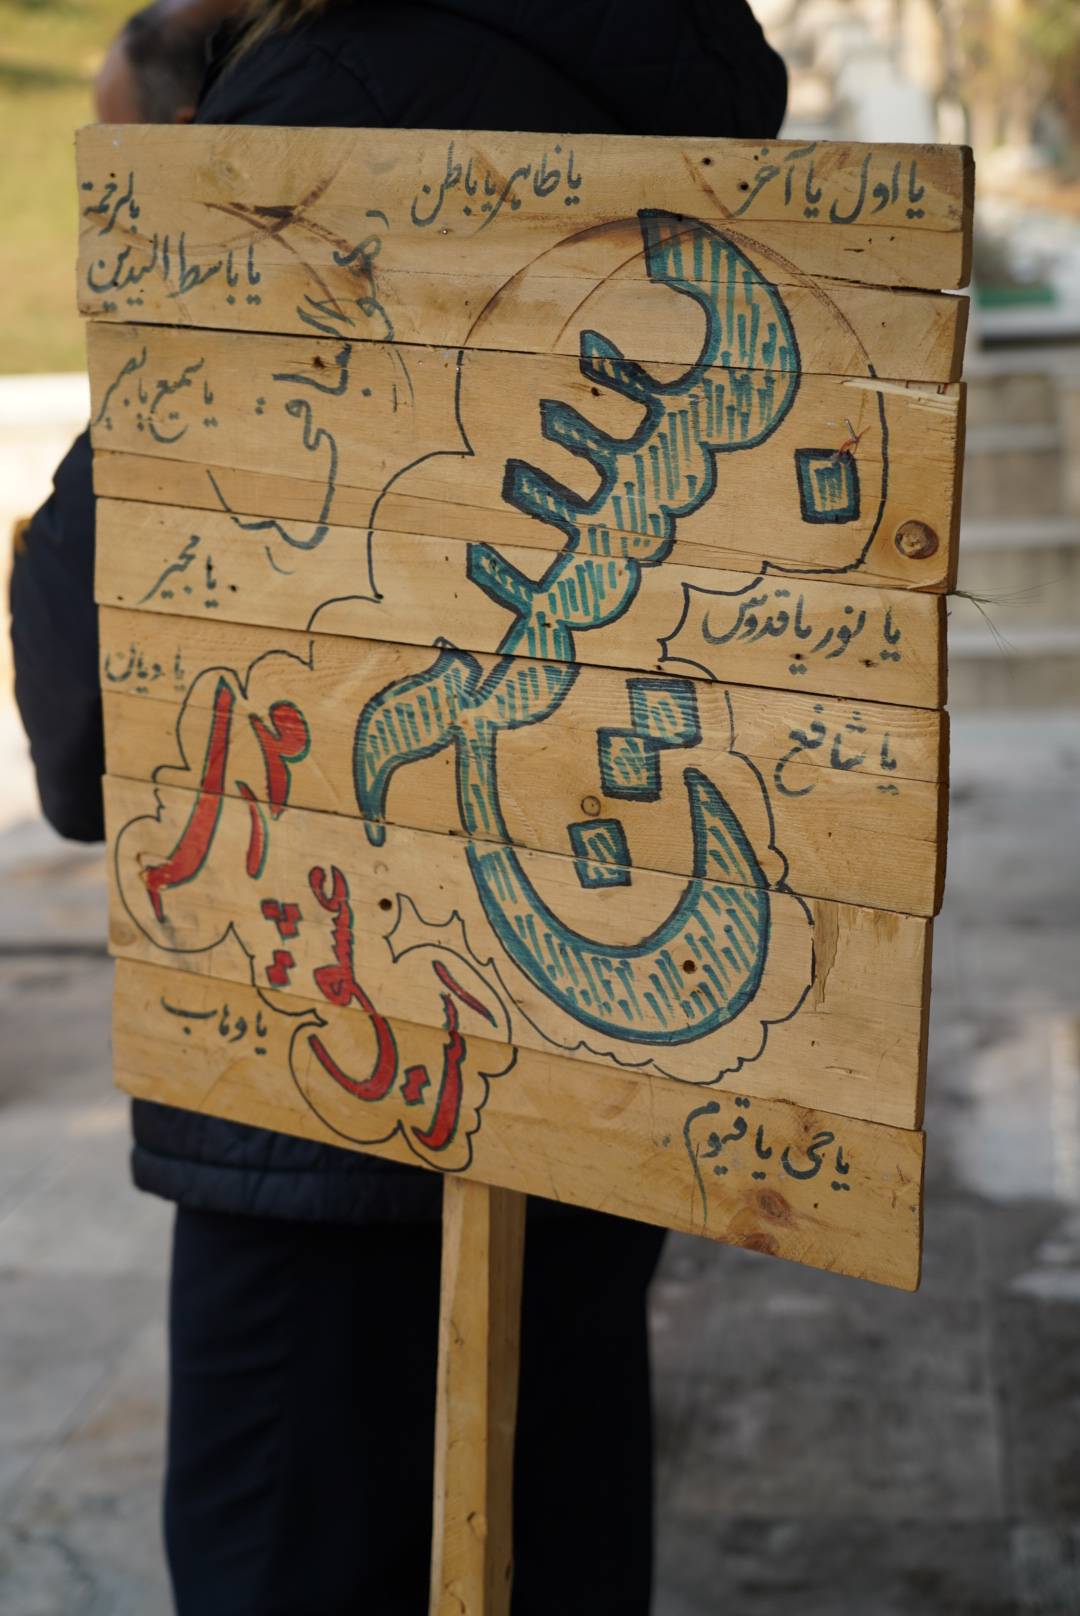 یا اول یا آخر
یا ظاهر یا باطن
یا باسط الیدین
بالرحمة
هو الباقی
یا سمیع یا بصیر
یا مجیر
یا نور یا قدوس
یا دیان
یا شافع
مادر
عشق
است
یا وهاب
یا حی یا قیوم